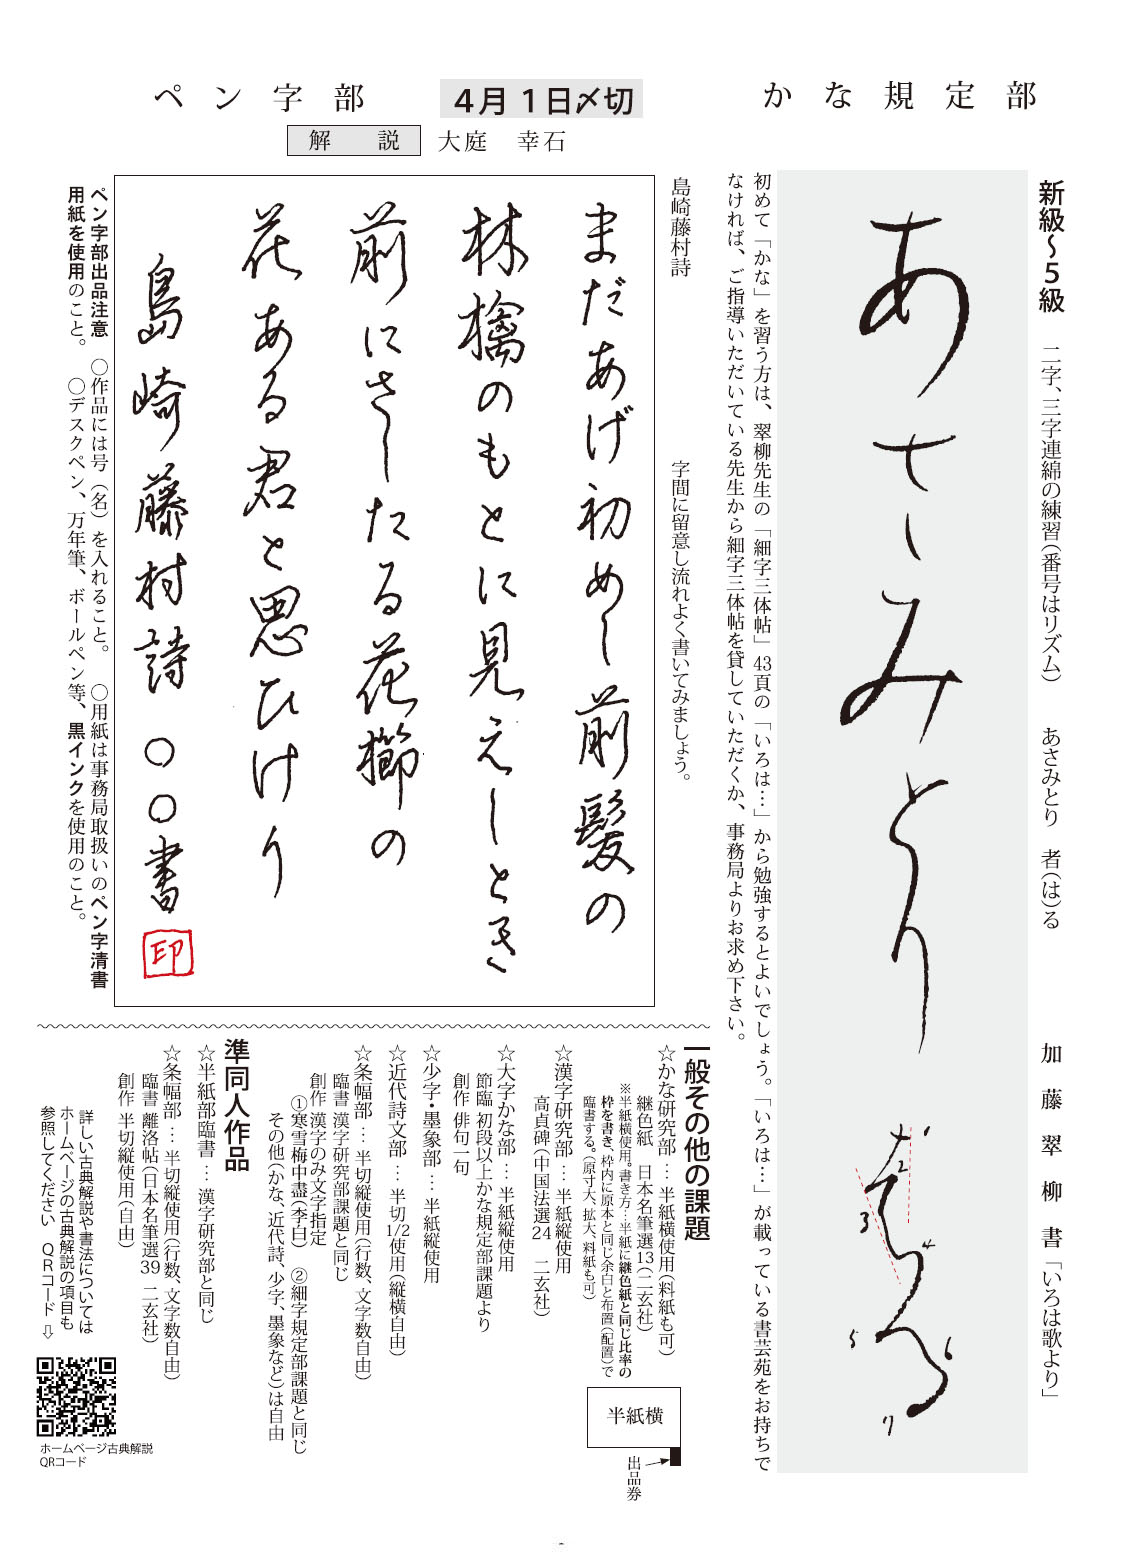 かな規定部
新級〜5級　二字、三字連綿の練習(番号はリズム)　あさみとり　者(は)る　加藤翠柳書「いろは歌より」
あさみとり者る
1
2
3
4
5
6
7
初めて「かな」を習う方は、翠柳先生の「細字三体帖」43頁の「いろは…」から勉強するとよいでしょう。「いろは…」が載っている書芸苑をお持ちで
なければ、ご指導いただいている先生から細字三体帖を貸していただくか、事務局よりお求め下さい。
ペン字部
4月1日〆切
解説　大庭　幸石
島崎藤村詩　字間に留意し流れよく書いてみましょう。
まだあげ初めし前髪の
林檎のもとに見えしとき
前にさしたる花櫛の
花ある君と思ひけり
島崎藤村詩　〇〇書
印
ペン字部出品注意　○作品には号（名）を入れること。　○用紙は事務局取扱いのペン字清書
用紙を使用のこと。　○デスクペン、万年筆、ボールペン等、黒インクを使用のこと。
一般その他の課題
☆かな研究部…半紙横使用(料紙も可)
継色紙　日本名筆選13(二玄社)
※半紙横使用。書き方…半紙に継色紙と同じ比率の
枠を書き、枠内に原本と同じ余白と布置(配置)で
臨書する。(原寸大、拡大、料紙も可)
半紙横
出品券
☆漢字研究部…半紙縦使用
高貞碑(中国法選24　二玄社)
☆大字かな部…半紙縦使用
節臨 初段以上かな規定部課題より
創作 俳句一句
☆少字・墨象部…半紙縦使用
☆近代詩文部…半切1/2使用(縦横自由)
☆条幅部…半切縦使用(行数、文字数自由)
臨書 漢字研究部課題と同じ
創作 漢字のみ文字指定
①寒雪梅中盡(李白)　②細字規定部課題と同じ
その他(かな、近代詩、少字、墨象など)は自由
準同人作品
☆半紙部臨書…漢字研究部と同じ
☆条幅部…半切縦使用(行数、文字数自由)
臨書 離洛帖(日本名筆選39　二玄社)
創作 半切縦使用(自由)
詳しい古典解説や書法については
ホームページの古典解説の項目も
参照してください　QRコード⇨
ホームページ古典解説
QRコード